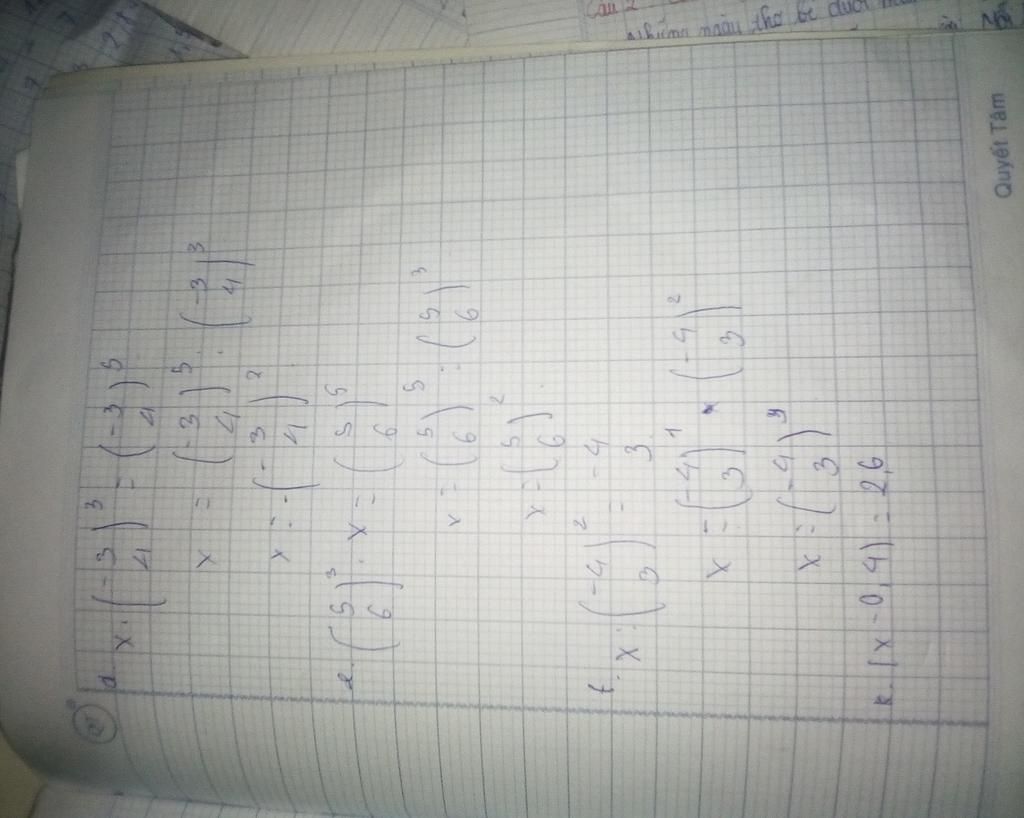 Câu 2
những ngày thơ bé dưới
Quyết Tâm
d. x . (-3/4)^3 = (-3/4)^5
x = (-3/4)^5 : (-3/4)^3
x = (-3/4)^2
e. (5/6)^3 . x = (5/6)^5
x = (5/6)^5 : (5/6)^3
x = (5/6)^2
f. x : (-4/3)^2 = -4/3
x = (-4/3)^1 × (-4/3)^2
x = (-4/3)^3
k. |x - 0,4| = 2,6